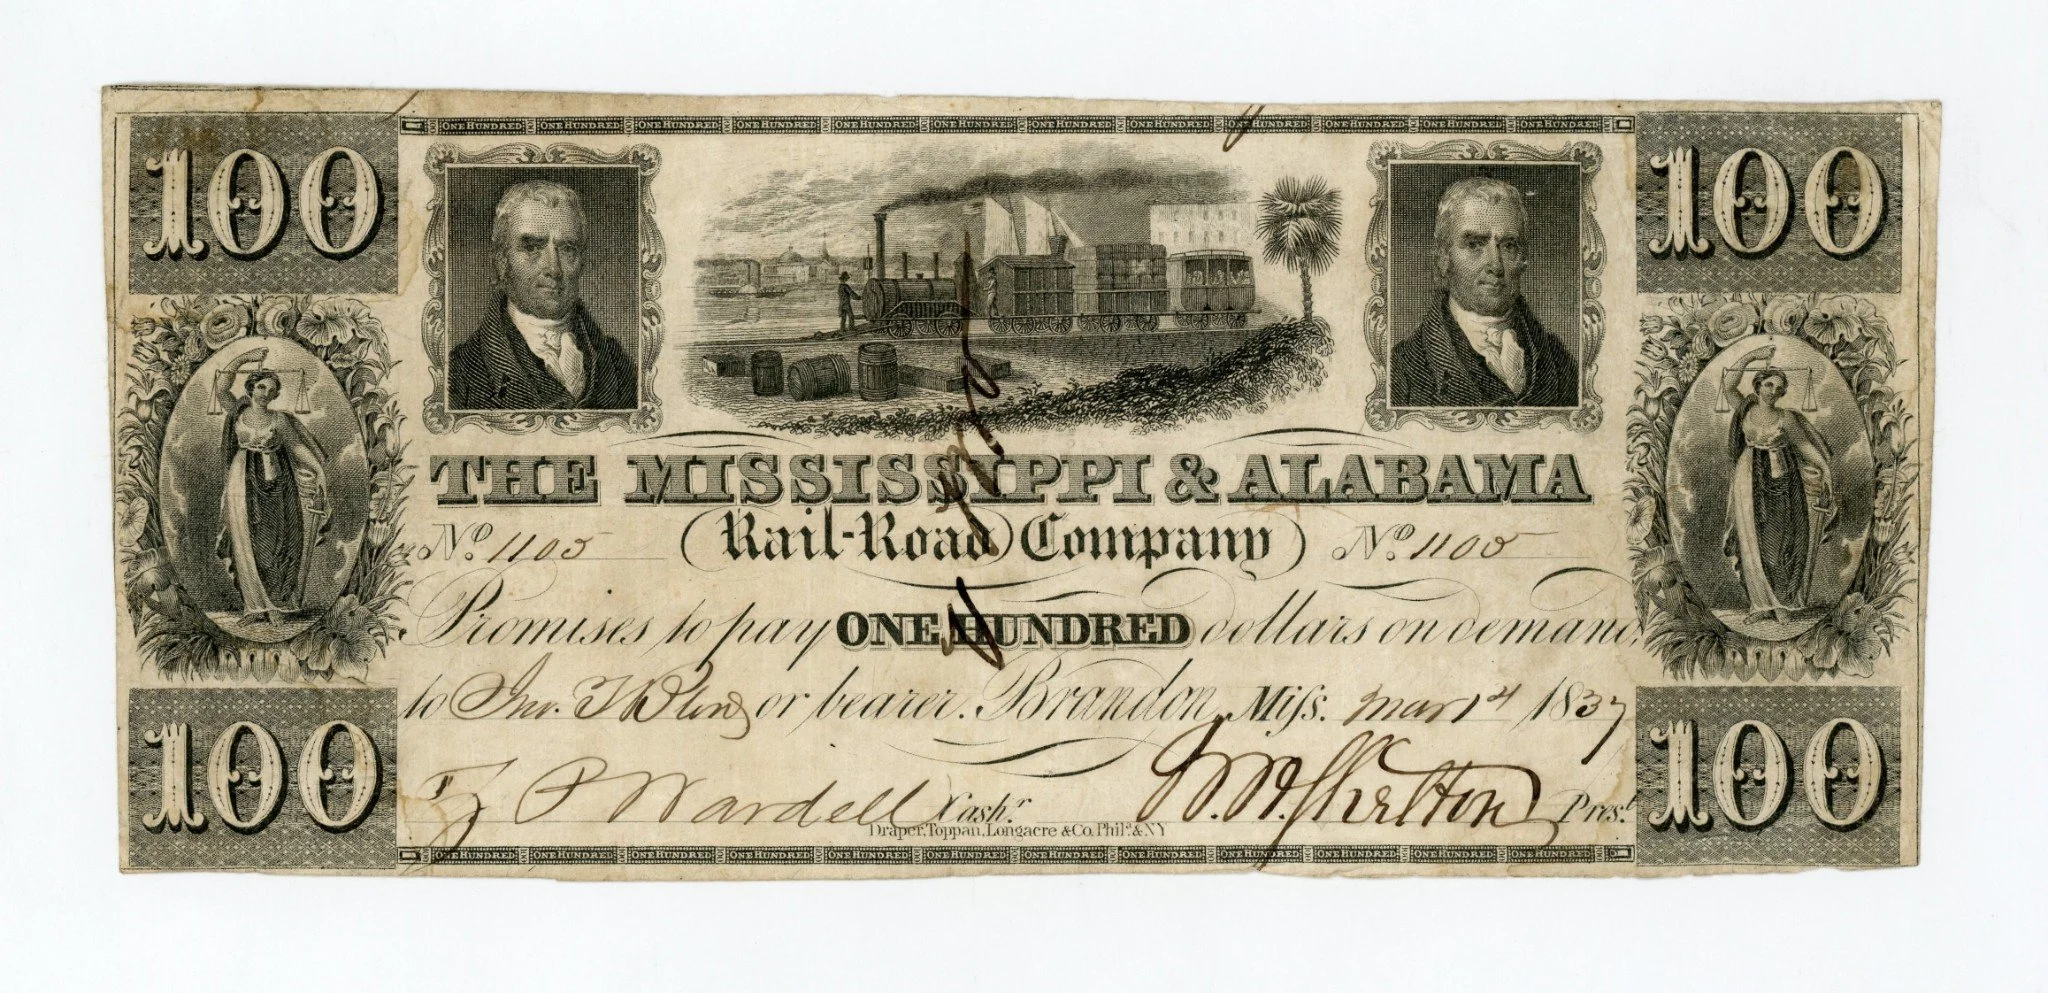 ONE HUNDRED ONE HUNDRED ONE HUNDRED ONE HUNDRED ONE HUNDRED ONE HUNDRED ONE HUNDRED ONE HUNDRED ONE HUNDRED ONE HUNDRED ONE HUNDRED ONE HUNDRED
100 100
THE MISSISSIPPI & ALABAMA
No. 1105 Rail-Road Company No. 1105
Promises to pay ONE HUNDRED dollars on demand,
to Jno. or bearer. Brandon, Miſs. Mar 14 1837
100 100
P Wardell Cashr. Shelton Prest.
Draper, Toppan, Longacre & Co. Phila. & NY
ONE HUNDRED ONE HUNDRED ONE HUNDRED ONE HUNDRED ONE HUNDRED ONE HUNDRED ONE HUNDRED ONE HUNDRED ONE HUNDRED ONE HUNDRED ONE HUNDRED ONE HUNDRED